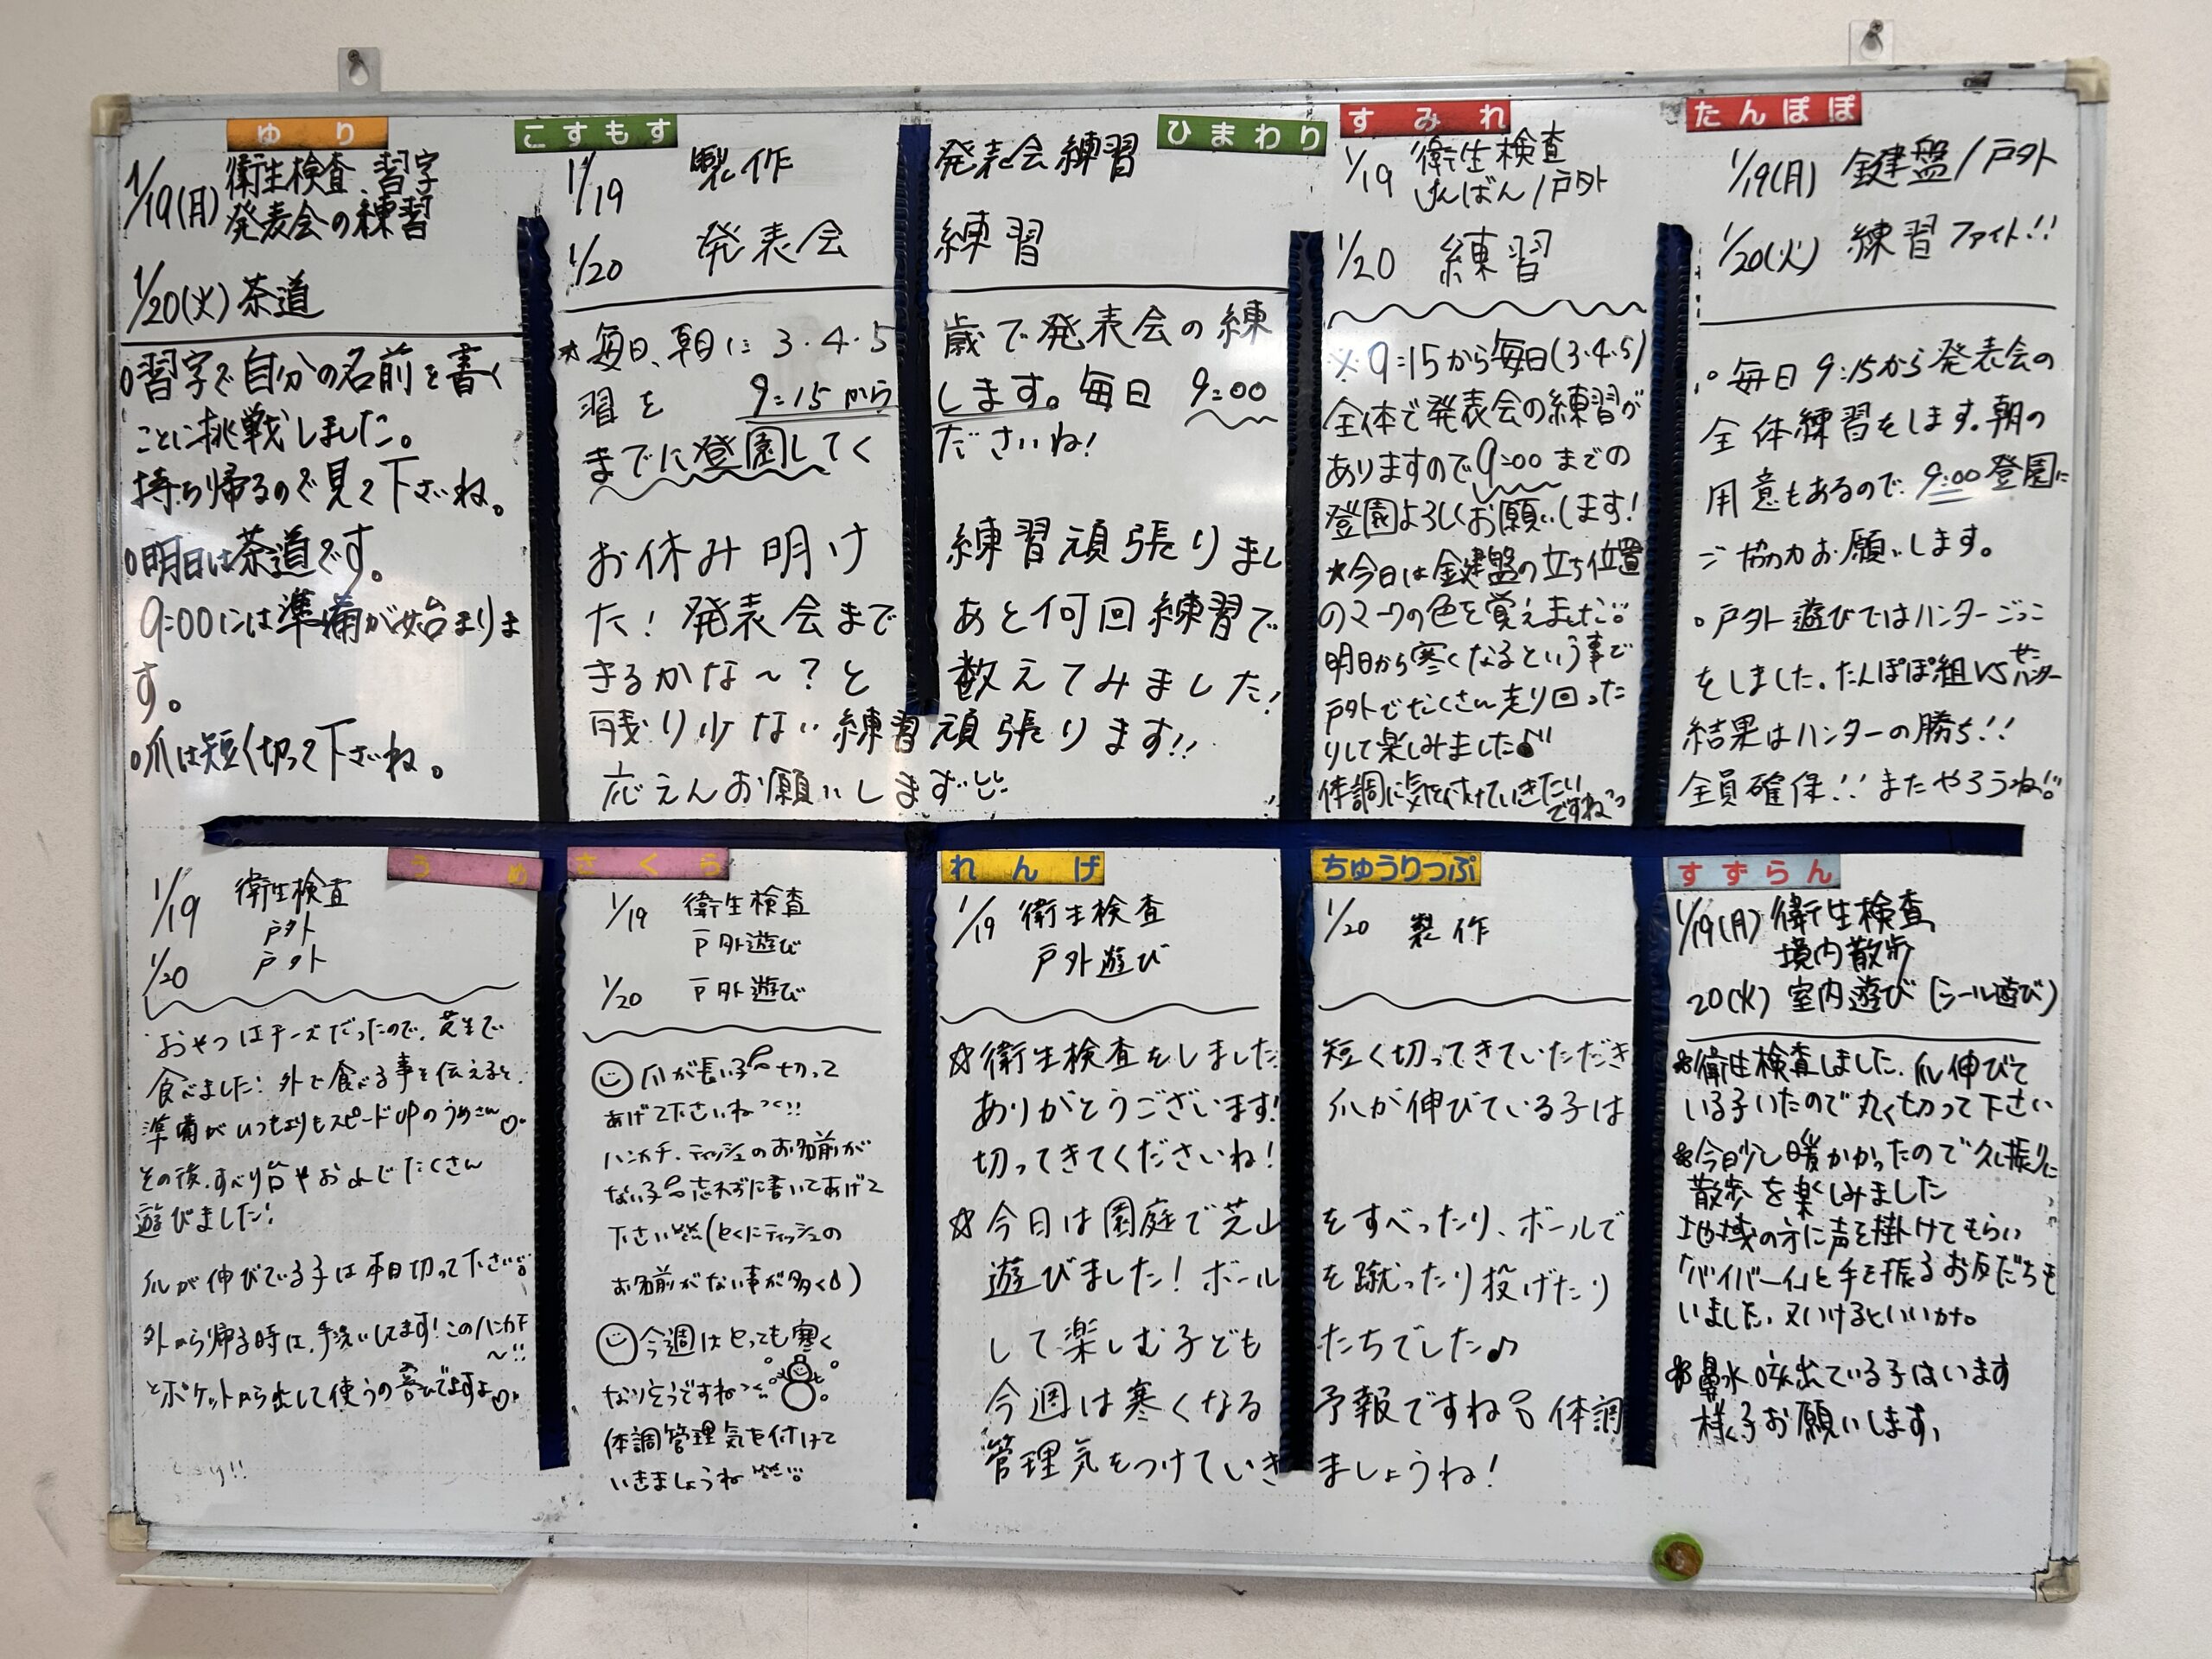 ゆり
1/19(月) 衛生検査、習字
発表会の練習
1/20(火) 茶道
○習字で自分の名前を書く
ことに挑戦しました。
持ち帰るので見て下さいね。
○明日は茶道です。
9:00には準備が始まりま
す。
○爪は短く切って下さいね。
こすもす ひまわり
1/19 製作 発表会練習
1/20 発表会 練習
★毎日、朝に3・4・5 歳で発表会の練
習を 9:15から します。毎日 9:00
までに登園してく ださいね!
お休み明け 練習頑張りまし
た!発表会まで あと何回練習で
きるかな〜?と 数えてみました!
残り少ない練習頑張ります!!
応えんお願いします
すみれ
1/19 衛生検査
けんばん/戸外
1/20 練習
※9:15から毎日(3・4・5)
全体で発表会の練習が
ありますので9:00までの
登園よろしくお願いします!
★今日は鍵盤の立ち位置
のマークの色を覚えました。
明日から寒くなるという事で
戸外でたくさん走り回った
りして楽しみました♪
体調に気を付けていきたい
ですね
たんぽぽ
1/19(月) 鍵盤/戸外
1/20(火) 練習ファイト!!
○毎日9:15から発表会の
全体練習をします。朝の
用意もあるので、9:00登園に
ご協力お願いします。
○戸外遊びではハンターごっこ
をしました。たんぽぽ組VS
ハンター
結果はハンターの勝ち!!
全員確保!!またやろうね!!
うめ
1/19 衛生検査
戸外
1/20 戸外
おやつはチーズだったので、芝生で
食べました!外で食べる事を伝えると、
準備がいつもよりもスピードUPのうめさん♡
その後、すべり台やお山でたくさん
遊びました!
爪が伸びている子は本日切って下さい。
外から帰る時は、手洗いしてます!このハンカチ
〜!!
とポケットから出して使うの喜んでますよ♡
さくら
1/19 衛生検査
戸外遊び
1/20 戸外遊び
爪が長い子 切って
あげて下さいね!!
ハンカチ、ティッシュのお名前が
ない子 忘れずに書いてあげて
下さい(とくにティッシュの
お名前がない事が多く)
今週はとっても寒く
なりそうですね
体調管理気を付けて
いきましょうね
れんげ ちゅうりっぷ
1/19 衛生検査 1/20 製作
戸外遊び
☆衛生検査をしました 短く切ってきていただき
ありがとうございます! 爪が伸びている子は
切ってきてくださいね!
☆今日は園庭で芝山 をすべったり、ボールで
遊びました!ボール を蹴ったり投げたり
して楽しむ子ども たちでした♪
今週は寒くなる 予報ですね 体調
管理気をつけていき ましょうね!
すずらん
1/19(月) 衛生検査、
境内散歩
20(火) 室内遊び(シール遊び)
衛生検査しました。爪伸びて
いる子いたので丸く切って下さい
今日少し暖かかったので久し振りに
散歩を楽しみました
地域の方に声を掛けてもらい
「バイバーイ」と手を振るお友だちも
いました。又いけるといいかな。
鼻水、咳出ている子はいます
様子お願いします。